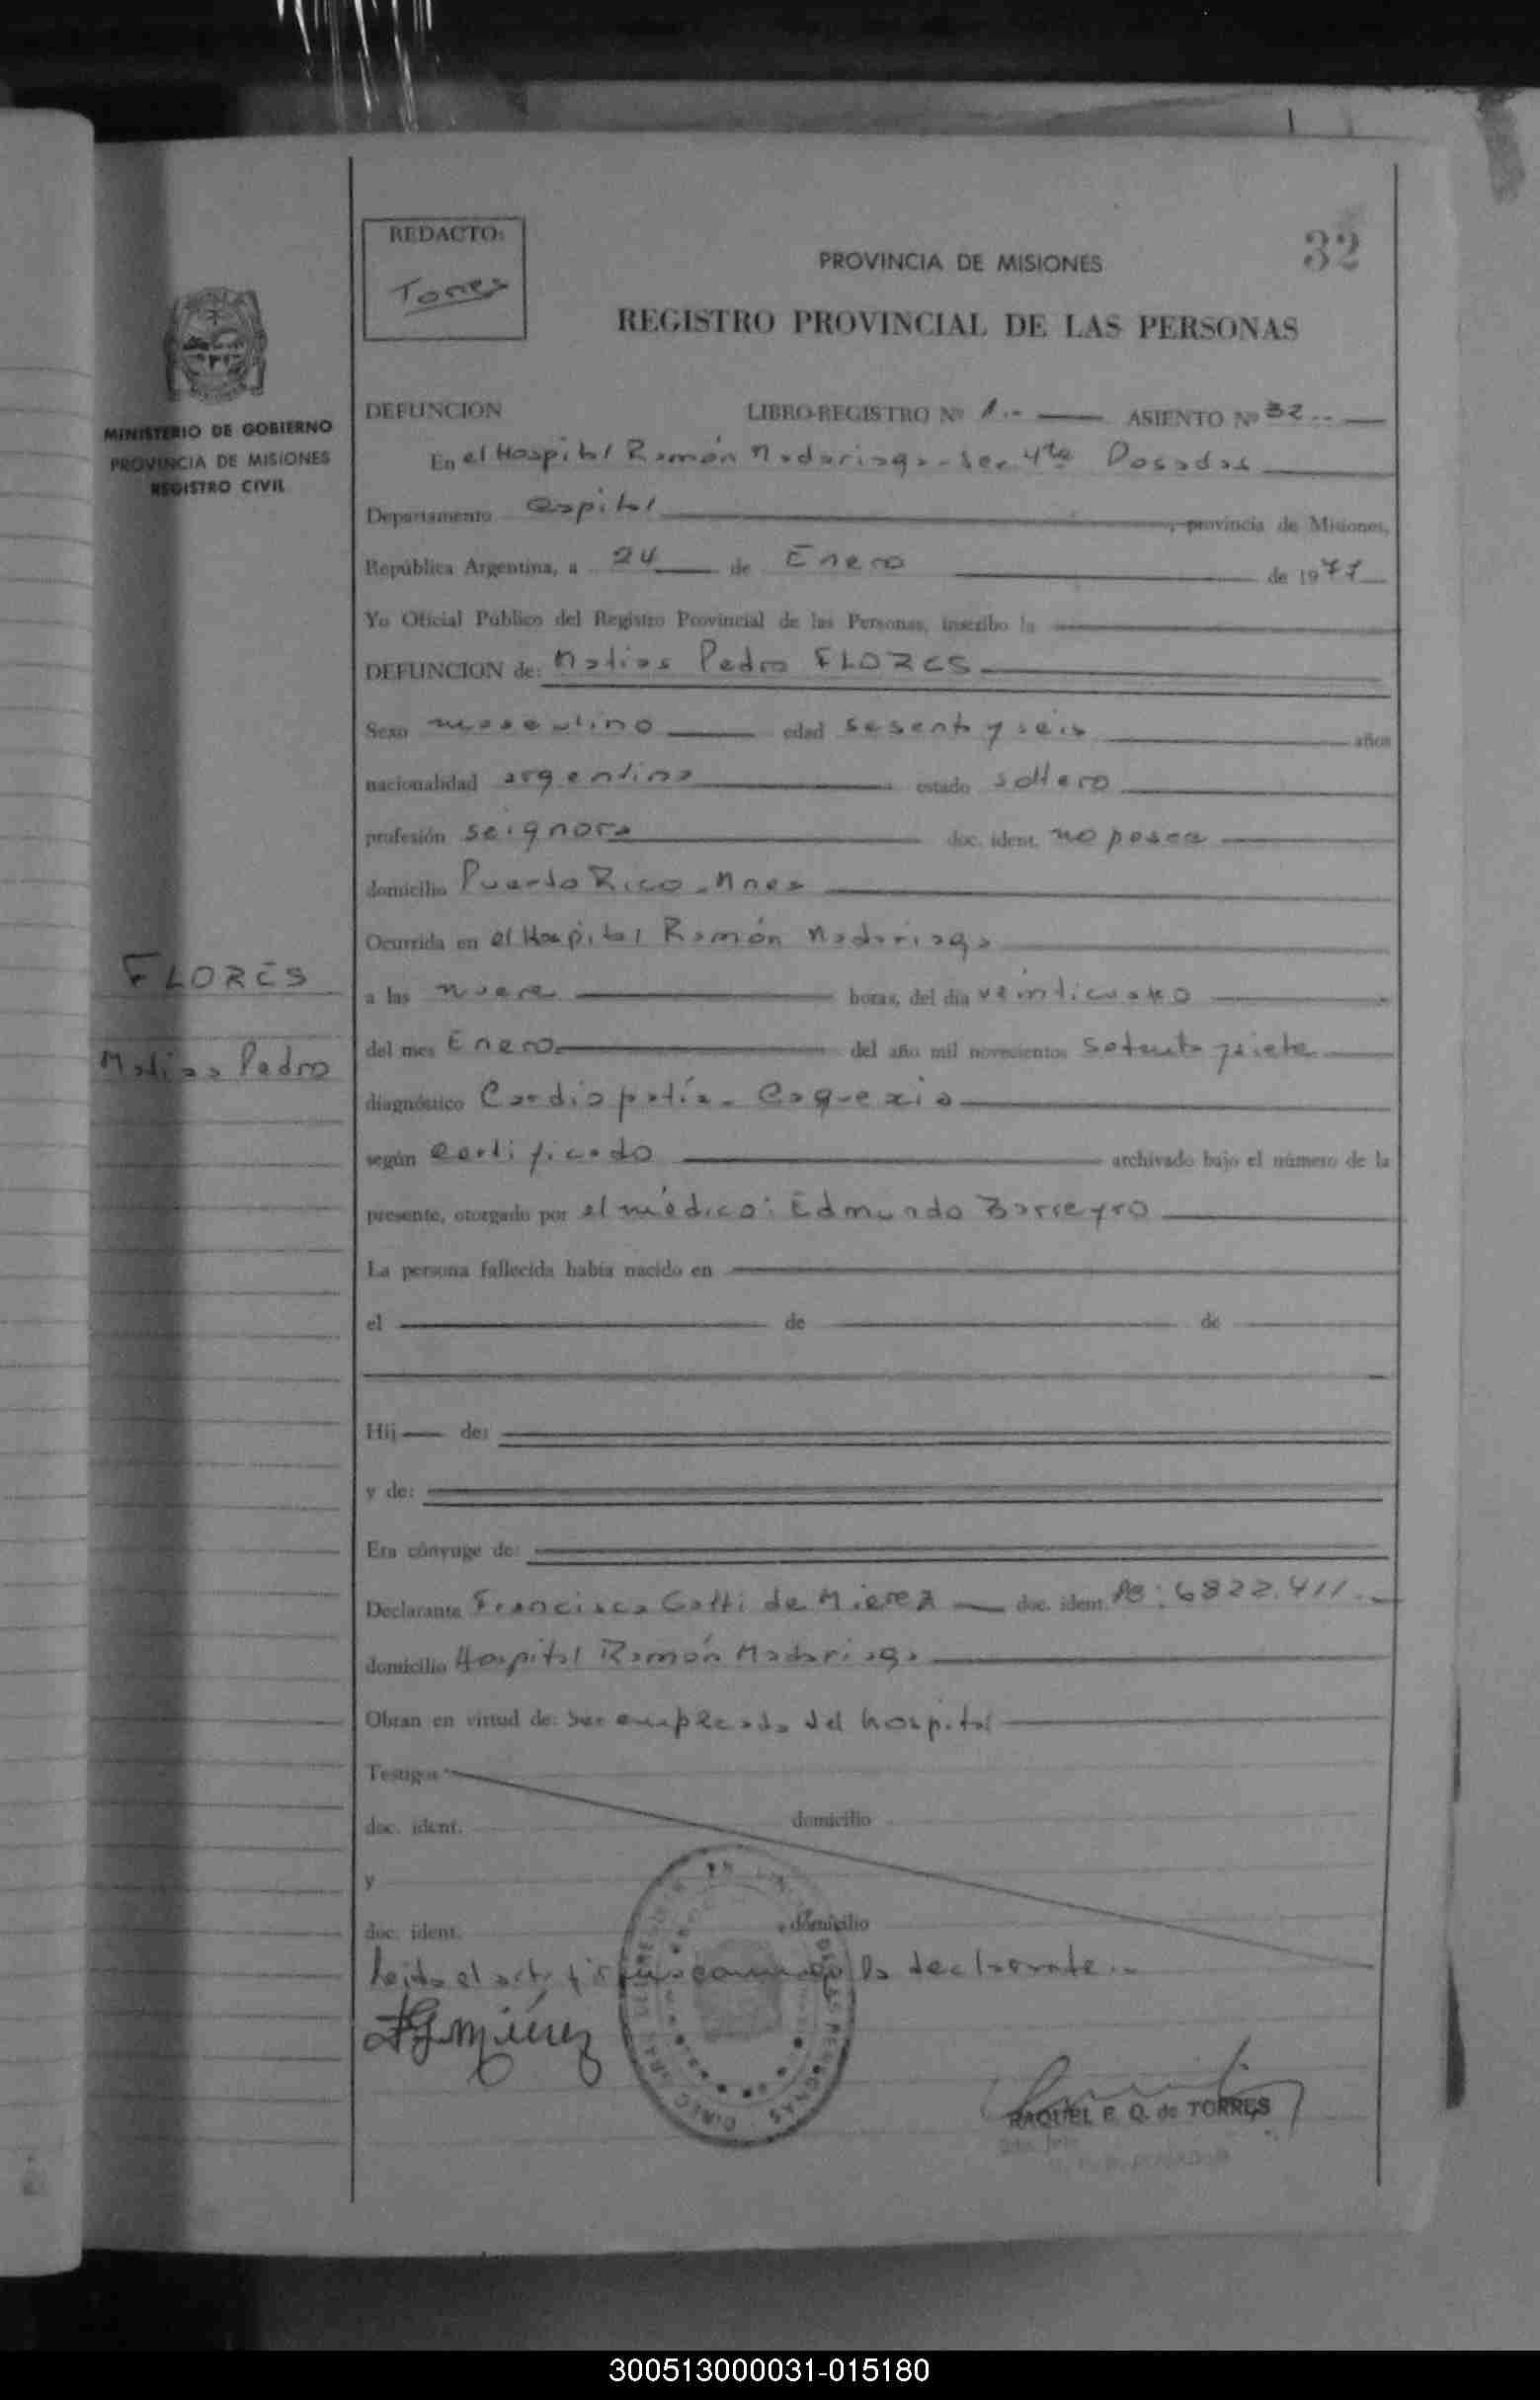 32
REDACTO:
Torres
PROVINCIA DE MISIONES
REGISTRO PROVINCIAL DE LAS PERSONAS
MINISTERIO DE GOBIERNO
PROVINCIA DE MISIONES
REGISTRO CIVIL
FLORES
Matias Pedro
DEFUNCION LIBRO-REGISTRO Nº 1.- ASIENTO Nº 32..
En el Hospital Ramón Madariaga - Sec 4ta Posadas
Departamento Capital, provincia de Misiones,
República Argentina, a 24 de Enero de 1977
Yo Oficial Público del Registro Provincial de las Personas, inscribo la
DEFUNCION de: Matias Pedro FLORES
Sexo masculino edad sesenta y seis años
nacionalidad argentina estado soltero
profesión doc. ident. no posee
domicilio Puerto Rico - Mnes
Ocurrida en el Hospital Ramón Madariaga
a las nueve horas, del día veinticuatro
del mes Enero del año mil novecientos setenta y siete
diagnóstico Cardiopatía - Caquexia
según certificado archivado bajo el número de la
presente, otorgado por el médico: Edmundo Barreyro
La persona fallecida había nacido en
el de de
Hij de:
y de:
Era cónyuge de:
Declarante Francisca Gatti de doc. ident. 6822.411.-
domicilio Hospital Ramón Madariaga
Obran en virtud de: ser empleada del hospital
Testigos
doc. ident. domicilio
y
doc. ident. domicilio
Leida el acta firma conmigo la declarante..
RAQUEL E. Q. de TORRES
300513000031-015180